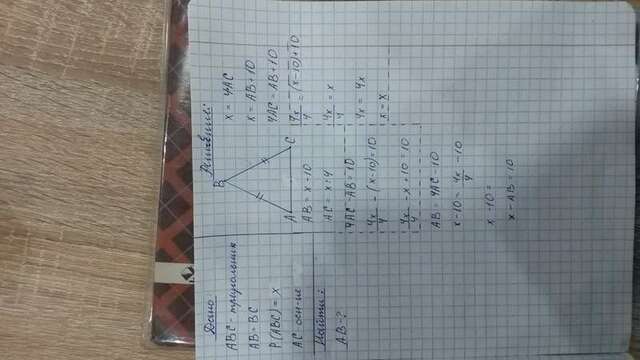 Дано
ABC - треугольник
AB = BC
P(ABC) = x
AC осн-ие
Найти:
AB - ?
Решение:
B
A
C
AB = x - 10
AC = x : 4
4AC - AB = 10
4x/4 - (x - 10) = 10
4x/4 - x + 10 = 10
AB = 4AC - 10
x - 10 = 4x/4 - 10
x - 10 =
x - AB = 10
x = 4AC
x = AB + 10
4AC = AB + 10
4x/4 = (x - 10) + 10
4x/4 = x
4x = 4x
x = x